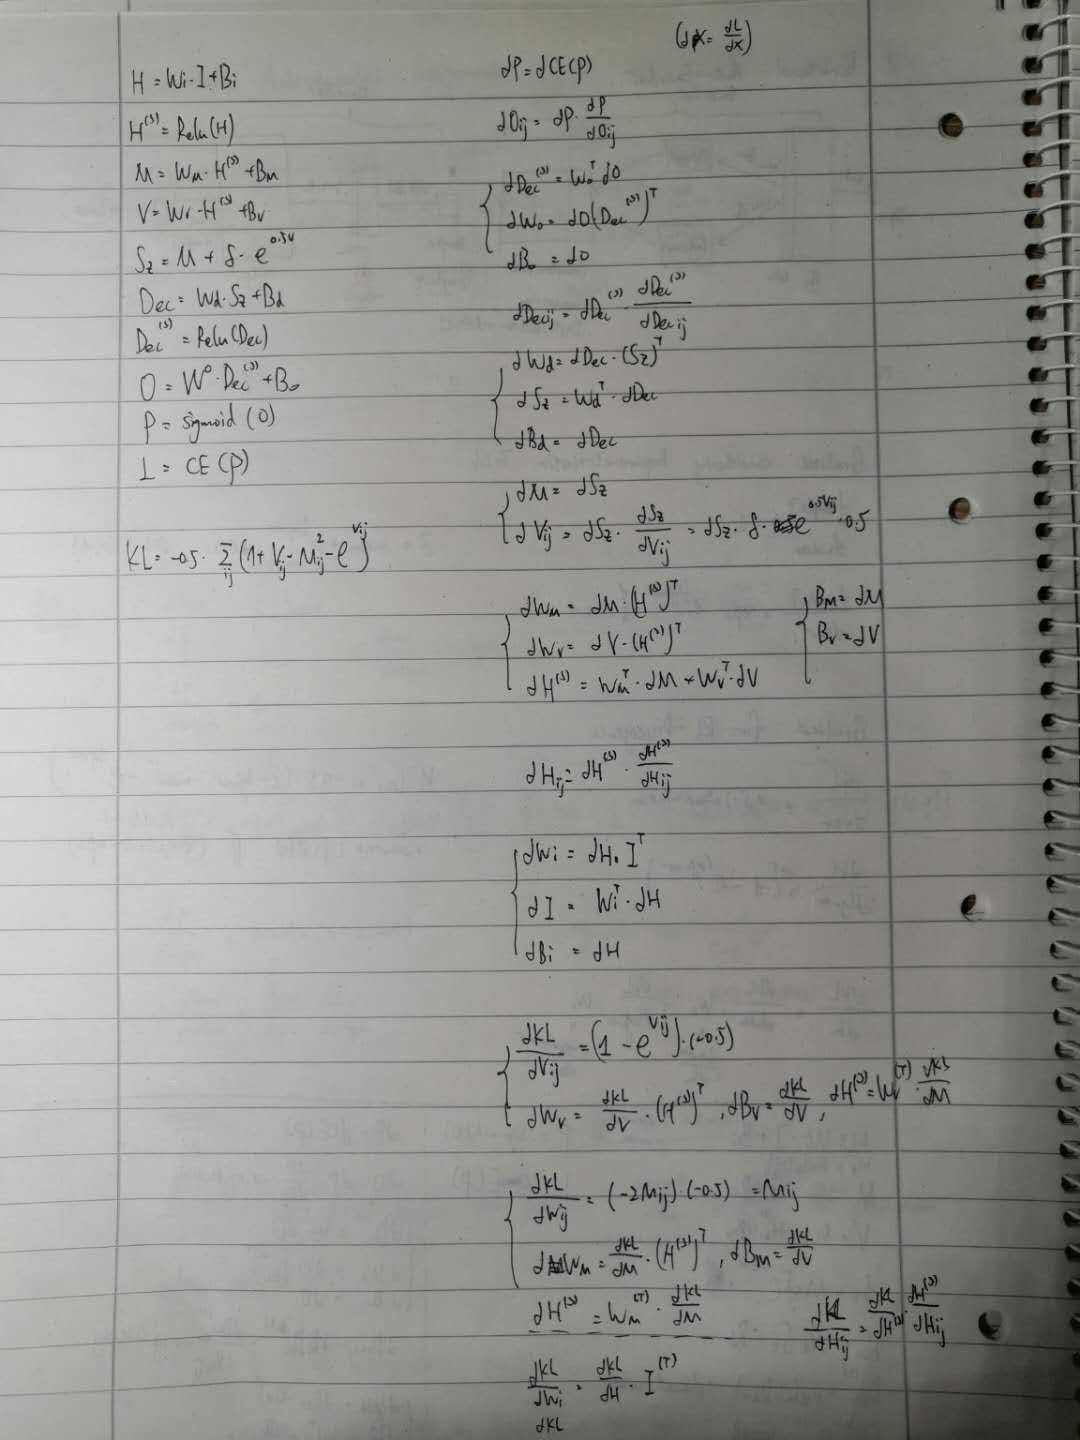 (dX = dL/dX)
H = Wi·I+Bi
H^(s) = Relu(H)
M = Wm·H^(s)+Bm
V = Wv·H^(s)+Bv
Sz = M + δ·e^0.5V
Dec = Wd·Sz+Bd
Dec^(s) = Relu(Dec)
O = W^o·Dec^(s)+Bo
P = sigmoid(O)
L = CE(P)
KL = -0.5·Σ_ij(1+V_ij-M_ij^2-e^V_ij)
dP = dCE(P)
dO_ij = dP·dP/dO_ij
dDec^(s) = Wo^T dO
dWo = dO(Dec^(s))^T
dBo = dO
dDec_ij = dDec^(s)·dDec^(s)/dDec_ij
dWd = dDec·(Sz)^T
dSz = Wd^T·dDec
dBd = dDec
dM = dSz
dV_ij = dSz·dSz/dV_ij = dSz·δ·e^0.5V_ij·0.5
dWm = dM·(H^(s))^T
Bm = dM
dWv = dV·(H^(s))^T
Bv = dV
dH^(s) = Wm^T·dM+Wv^T·dV
dH_ij = dH^(s)·dH^(s)/dH_ij
dWi = dH·I^T
dI = Wi^T·dH
dBi = dH
dKL/dV_ij = (1-e^V_ij)·(-0.5)
dWv = dKL/dV·(H^(s))^T, dBv = dKL/dV, dH^(s) = Wv^(T)·dKL/dM
dKL/dW_ij = (-2M_ij)·(-0.5) = M_ij
dWm = dKL/dM·(H^(s))^T, dBm = dKL/dV
dH^(s) = Wm^(T)·dKL/dM
dKL/dH_ij = dKL/dH^(s)·dH^(s)/dH_ij
dKL/dWi = dKL/dH·I^(T)
dKL